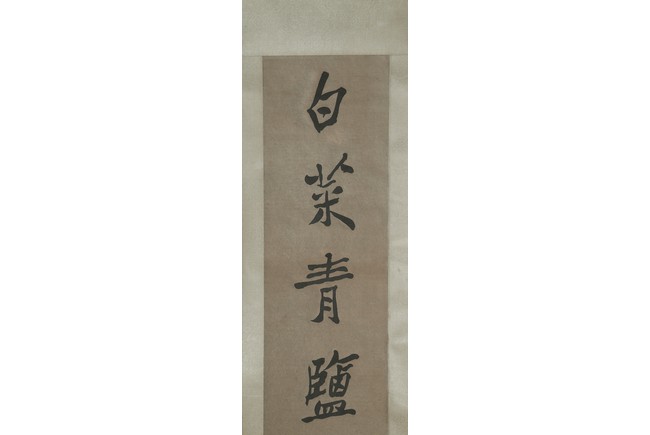 白菜青鹽